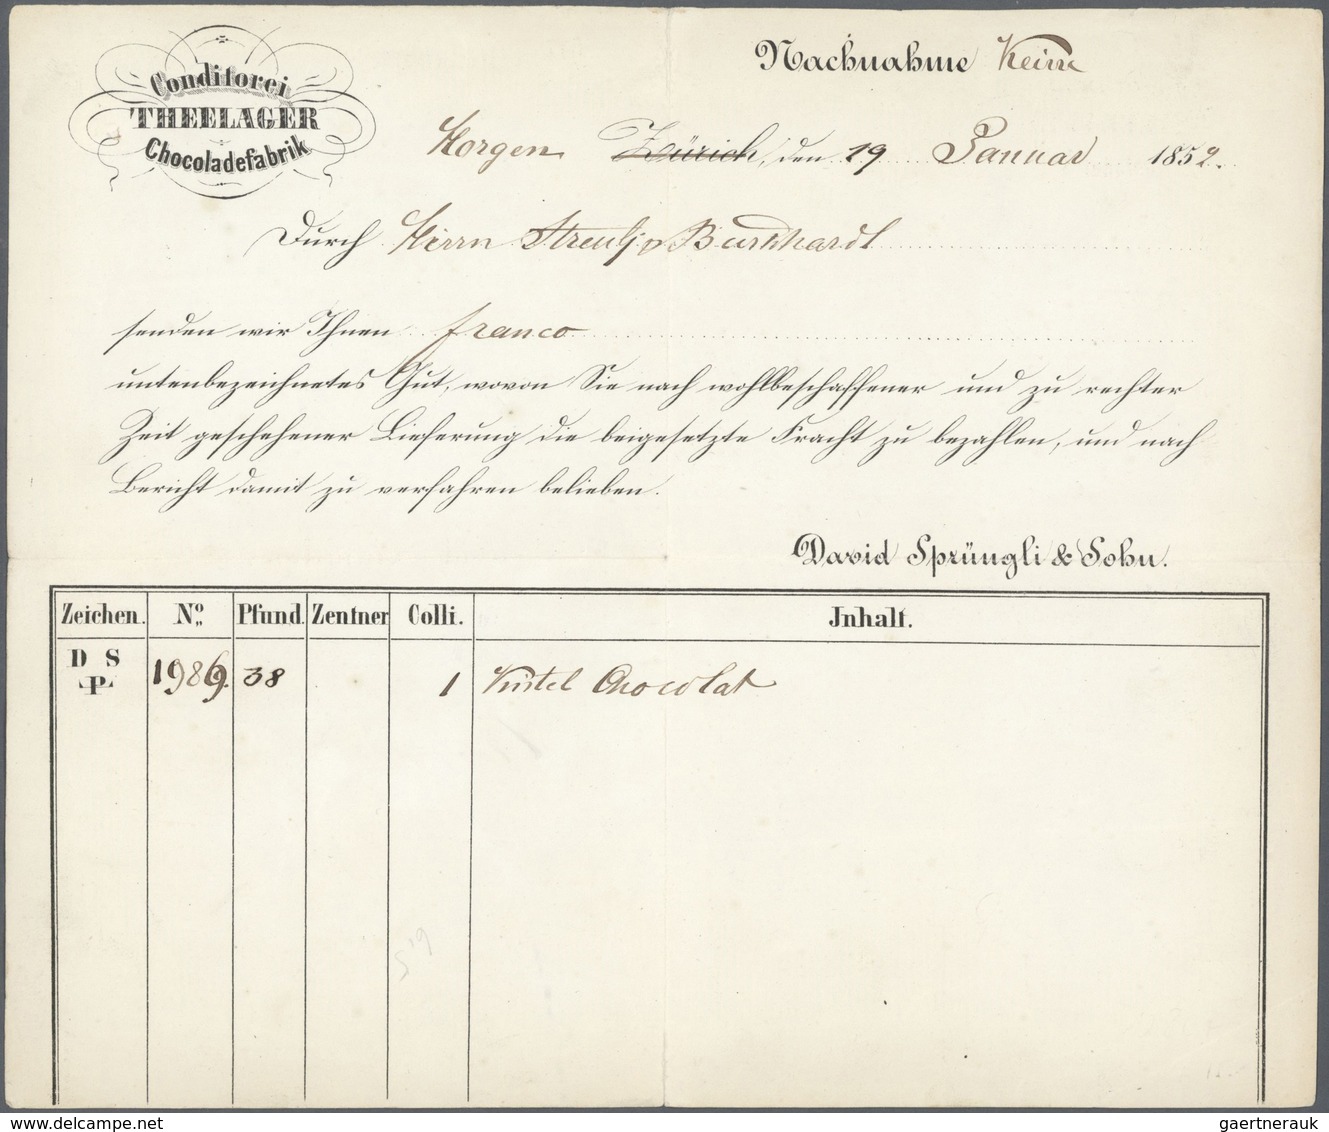 Conditorei
THEELAGER
Chocoladefabrik
Nachnahme Keine
Horgen Zürich, den 19 Januar 1859.
Durch Herrn Streuli, Burkhardt
senden wir Ihnen franco
untenbezeichnetes Gut, wovon Sie nach wohlbeschaffener und zu rechter
Zeit geschehener Lieferung die beigesetzte Fracht zu bezahlen, und nach
Bericht damit zu verfahren belieben.
David Sprüngli & Sohn.
Zeichen. No. Pfund. Zentner Colli. Inhalt.
D S 1986. 38 1 Kistel Chocolat
P
gaertnerauk
www.delcampe.net